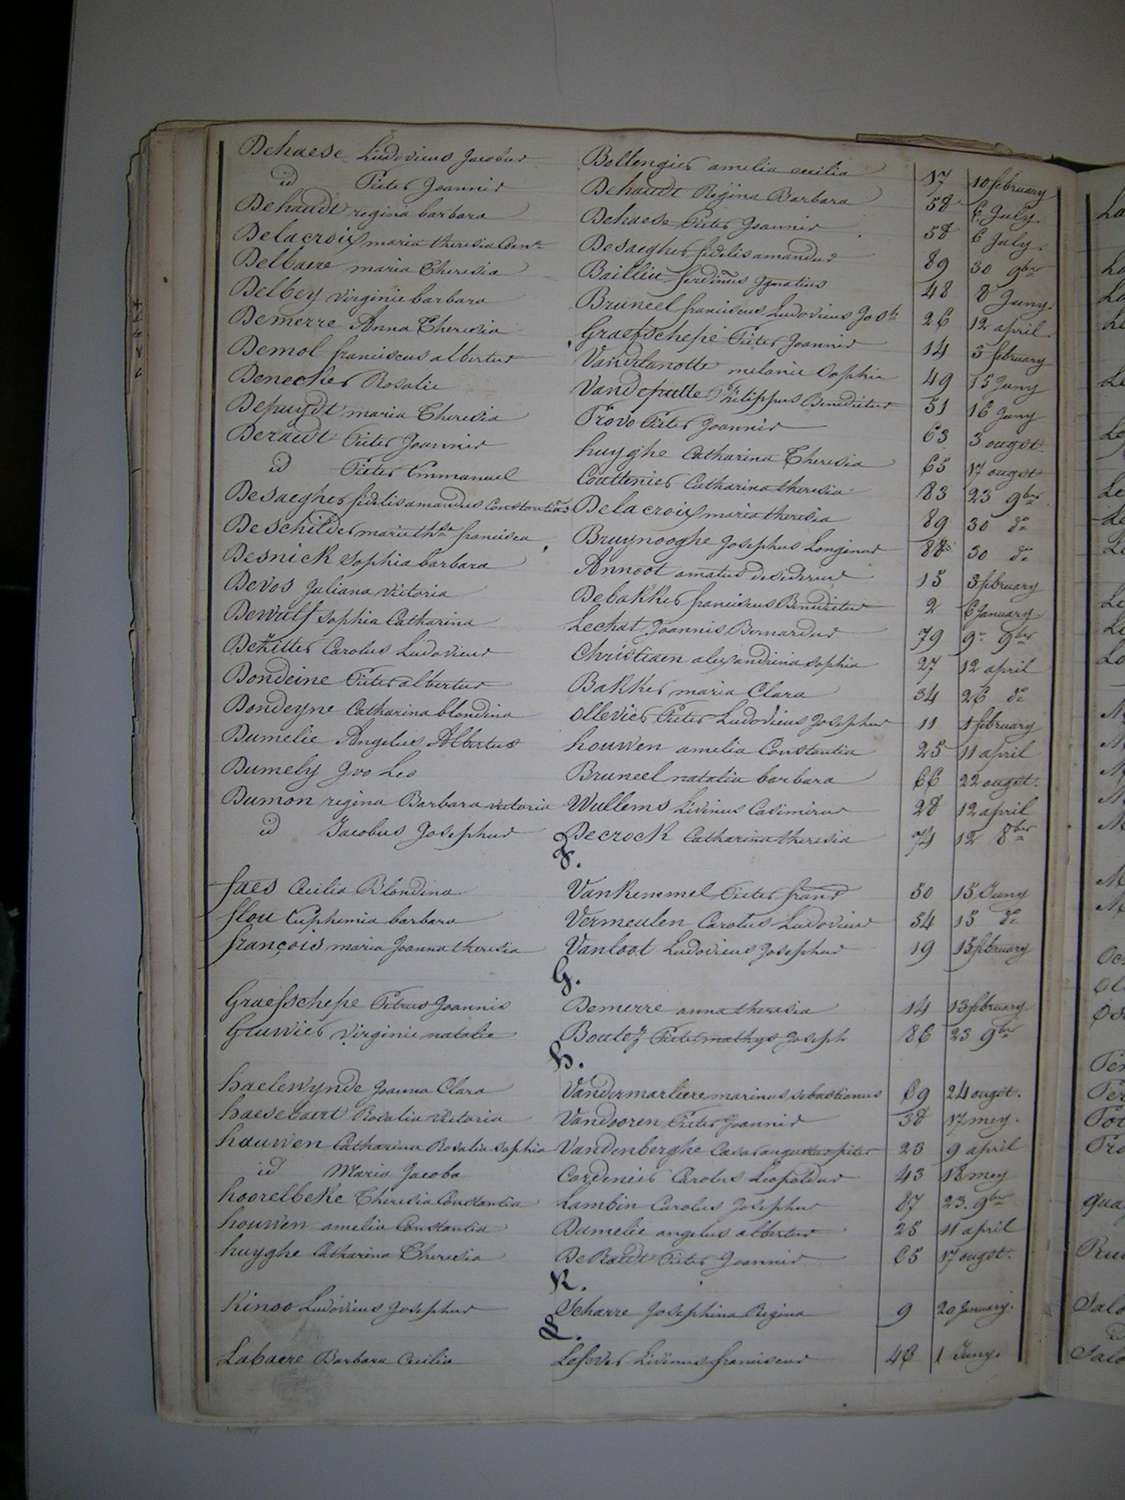 Dehaese Ludovicus Jacobus Bollengier amelia cecilia 17 10 february
id Pieter Joannis Dehaudt Regina Barbara 58 6 July
Dehaudt regina barbara Dehaese Pieter Joannis 58 6 July
Delacroix maria theresia Desaegher fidelis amandus 89 30 9ber
Delbaere maria Theresia Baillieu ferdinus Ignatius 48 8 Juny
Delbey virginie barbara Bruneel franciscus Ludovicus 26 12 april
Demerre Anna Theresia Graefschepe Pieter Joannis 14 3 february
Demol franciscus albertus Vandelanotte melanie Sophia 49 15 Juny
Denecker Rosalie Vandeputte Philippus Benedictus 51 16 Juny
Depuydt maria Theresia Provo Pieter Joannis 63 3 ougst
Deraedt Pieter Joannis huyghe Catharina Theresia 65 17 ougst
id Pieter Emmanuel Couttenier Catharina theresia 83 23 9ber
Desaegher fidelis amandus Constantinus Delacroix maria theresia 89 30 do
Deschilder marie thsa francisca Bruynooghe Josephus Longinus 88 30 do
Desnick Sophia barbara Annoot amatus desiderius 15 3 february
Devos Juliana victoria Debakker franciscus Benedictus 2 6 January
Dewulf Sophia Catharina Lechat Joannis Bernardus 79 9 9ber
Dezitter Carolus Ludovicus Christiaen alexandrina sophia 27 12 april
Dondeine Pieter albertus Bakker maria Clara 34 26 do
Dondeyne Catharina blondina Ollevier Pieter Ludovicus Josephus 11 1 february
Dumelie Angelus Albertus houwen amelia Constantia 25 11 april
Dumely Ivo Leo Bruneel natalia barbara 66 22 ougst
Dumon regina Barbara victoria Wullems Livinus Casimirus 28 12 april
id Jacobus Josephus Decrock Catharina theresia 74 12 8ber
F.
faes Cecilia Blondina VanKemmel Pieter frans 50 15 Juny
flou Euphemia barbara Vermeulen Carolus Ludovicus 54 15 do
françois maria Joanna theresia Vanloot Ludovicus Josephus 19 15 february
G.
Graefschepe Petrus Joannis Demerre anna theresia 14 13 february
Gruwier Virginie natalie Boutez Pieter mathys Joseph 86 23 9ber
H.
haelewynde Joanna Clara Vandermarliere marinus sebastianus 69 24 ougst
haeseraert Rosalia victoria Vandooren Pieter Joannis 38 17 mey
hauwen Catharina Rosalia sophia Vandenberghe Caesar augustus pieter 23 9 april
id Maria Jacoba Cordenier Carolus Leopoldus 43 18 mey
hoorelbeke Theresia Constantia Lambin Carolus Josephus 87 23 9ber
houwen amelia Constantia Dumelie angelus albertus 25 11 april
huyghe Catharina Theresia DeRaedt Pieter Joannis 65 17 ougst
K.
Kinoo Ludovicus Josephus Scharre Josephina Regina 9 20 January
L.
Labaere Barbara Cecilia Lefever Livinus franciscus 46 1 Juny